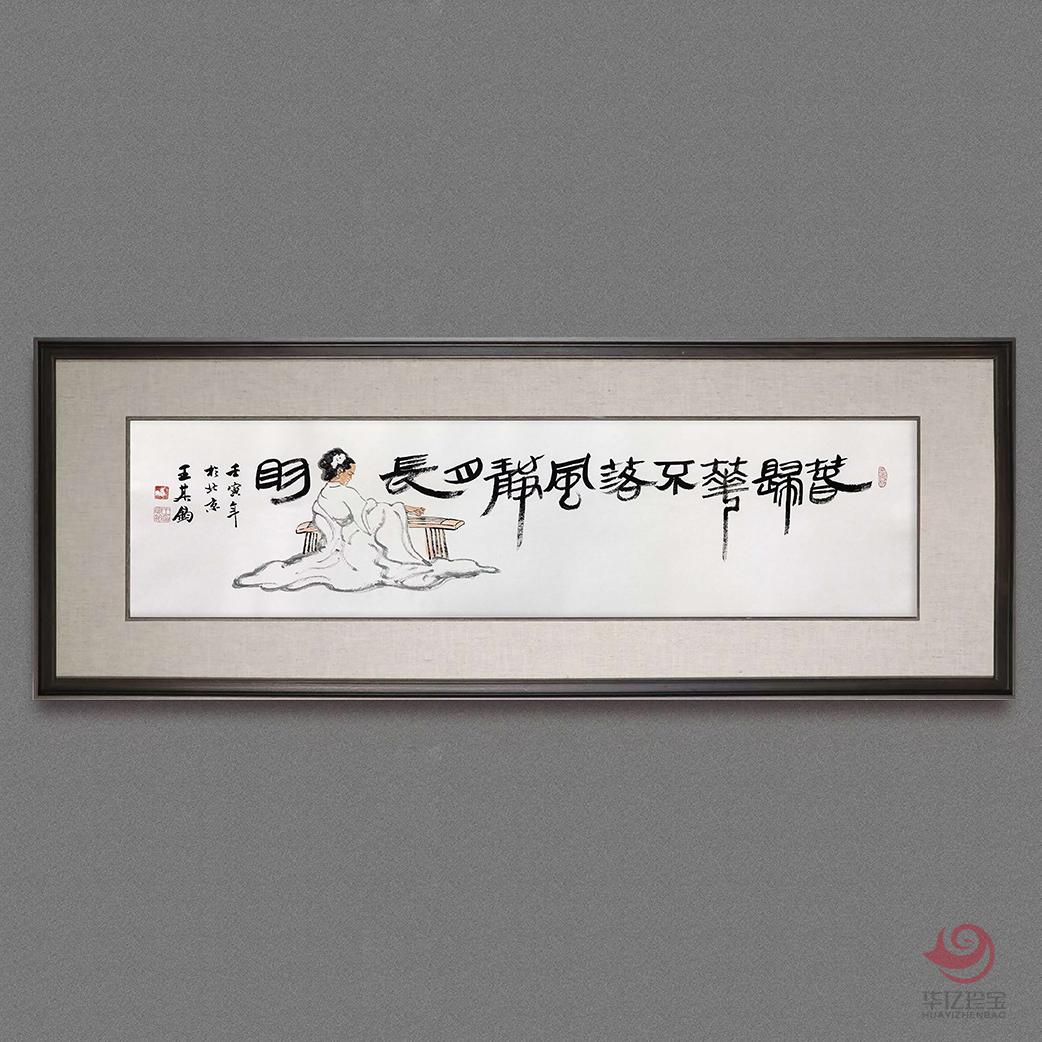 春歸華不落風靜月長明
壬寅年
於北京
王其鈞
华亿珍宝
HUAYIZHENBAO